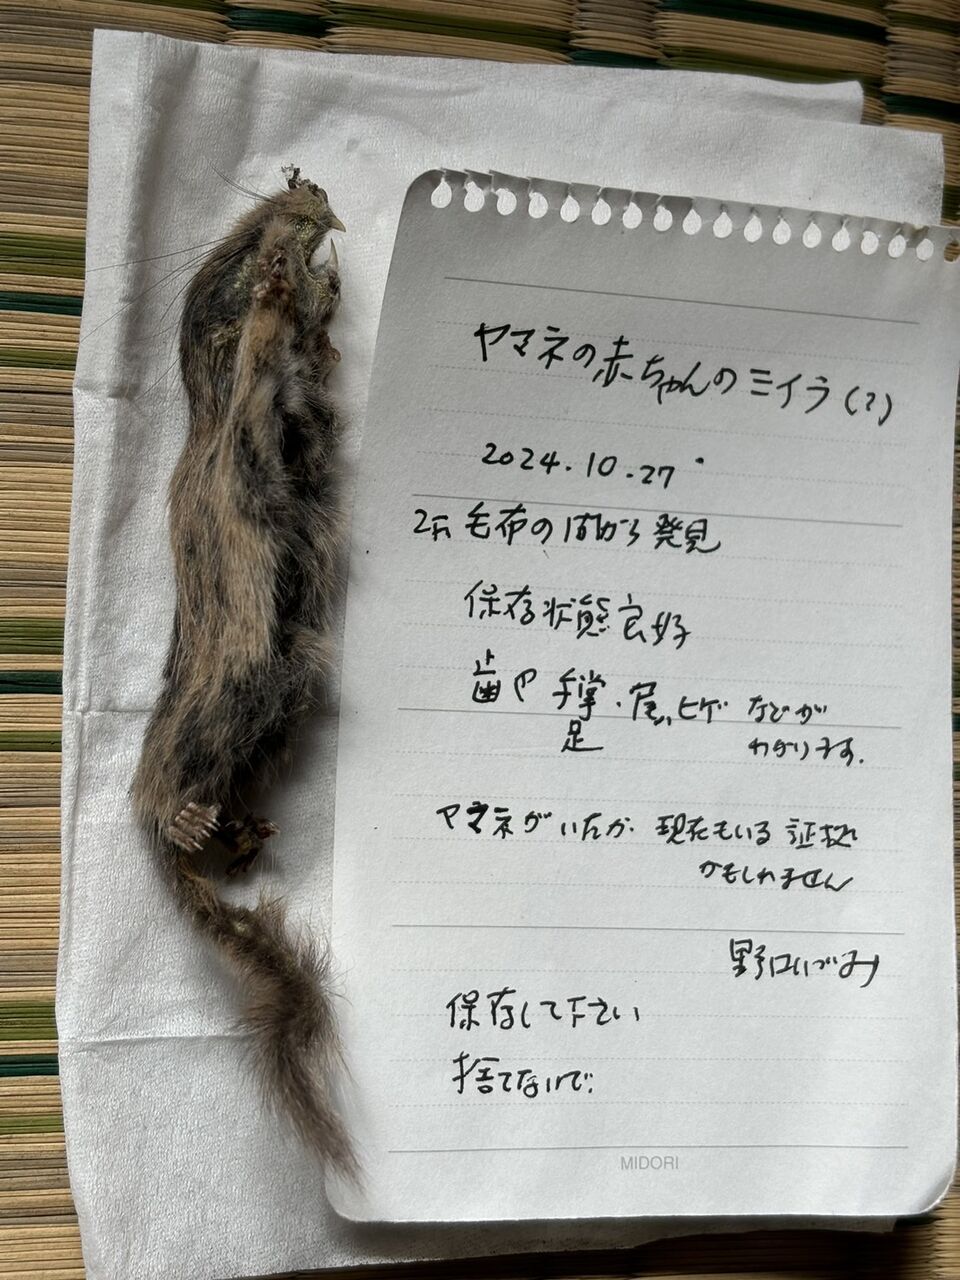 ヤマネの赤ちゃんのミイラ(?)
2024.10.27
2Fの毛布の間から発見
保存状態良好
歯や手掌・尾、ヒゲなどが
足
わかります。
ヤマネがいたか、現在もいる証拠
かもしれません
野口いづみ
保存して下さい
捨てないで
MIDORI